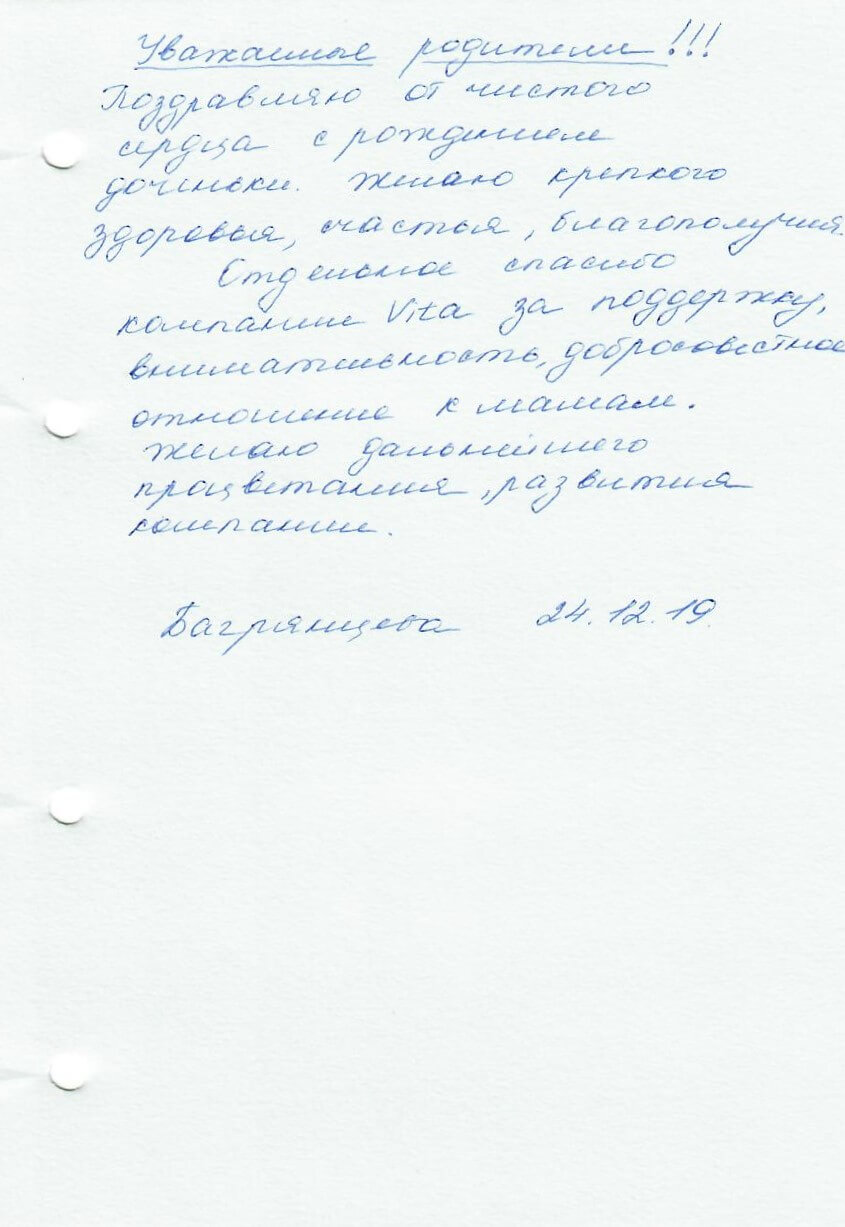 Уважаемые родители!!!
Поздравляю от чистого
сердца с рождением
доченьки. Желаю крепкого
здоровья, счастья, благополучия.
Отдельное спасибо
компании Vita за поддержку,
внимательность, добросовестное
отношение к мамам.
Желаю дальнейшего
процветания, развития
компании.
Багрянцева 24.12.19.